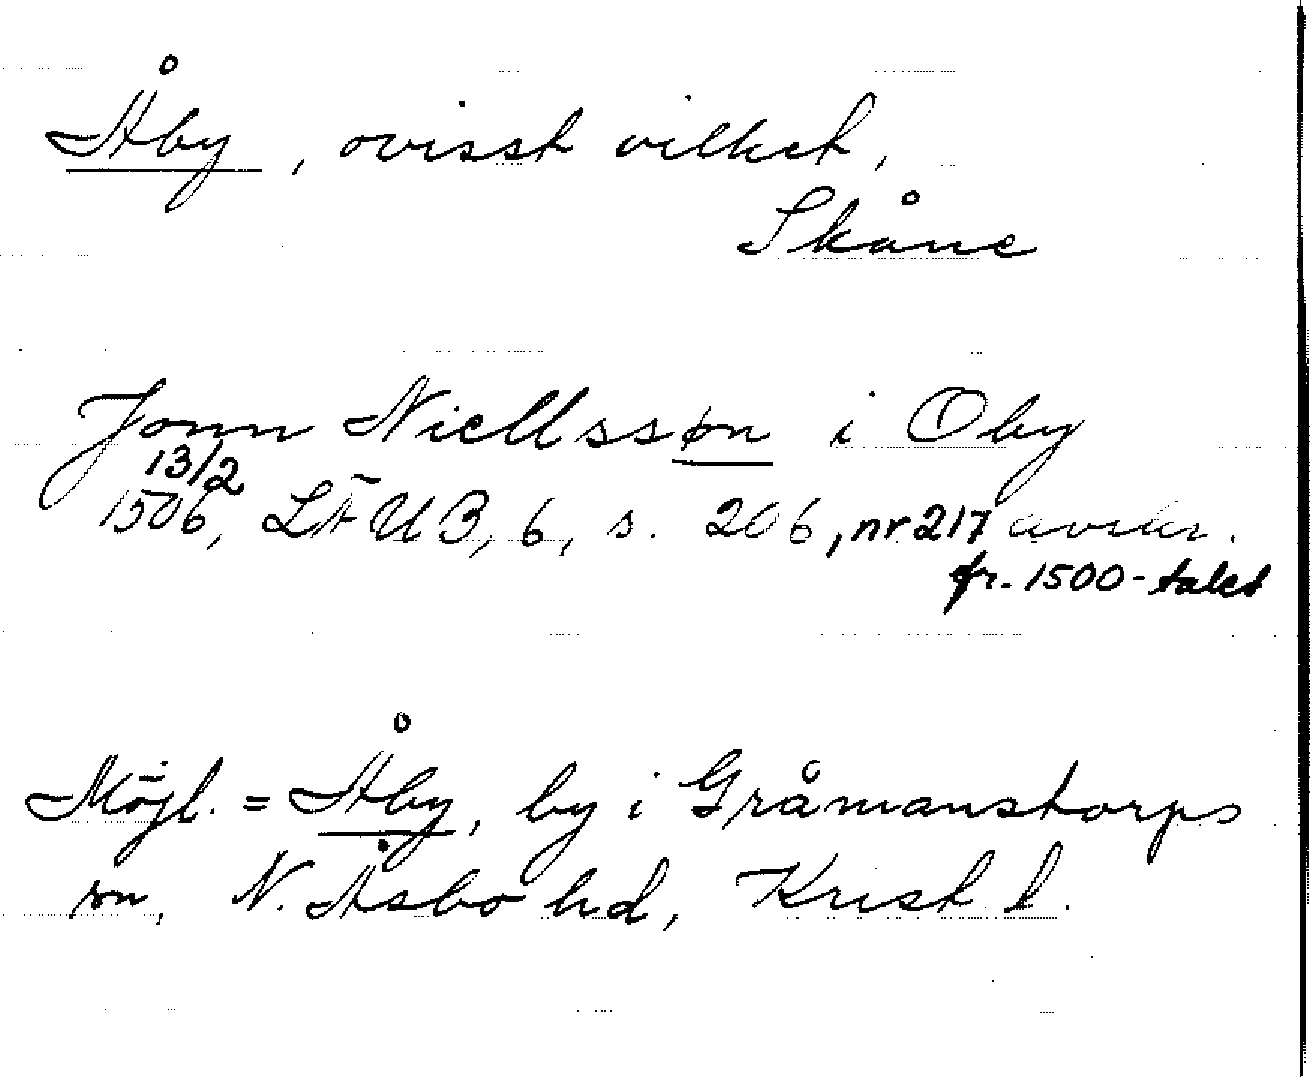 Åby, ovisst vilket,
Skåne
Jonn Niellssøn i Oby
13/2
1506, LÄUB, 6, s. 206, nr 217 avskr.
fr. 1500-talet
Möjl. = Åby, by i Gråmanstorps
sn, N. Åsbo hd, Krist l.